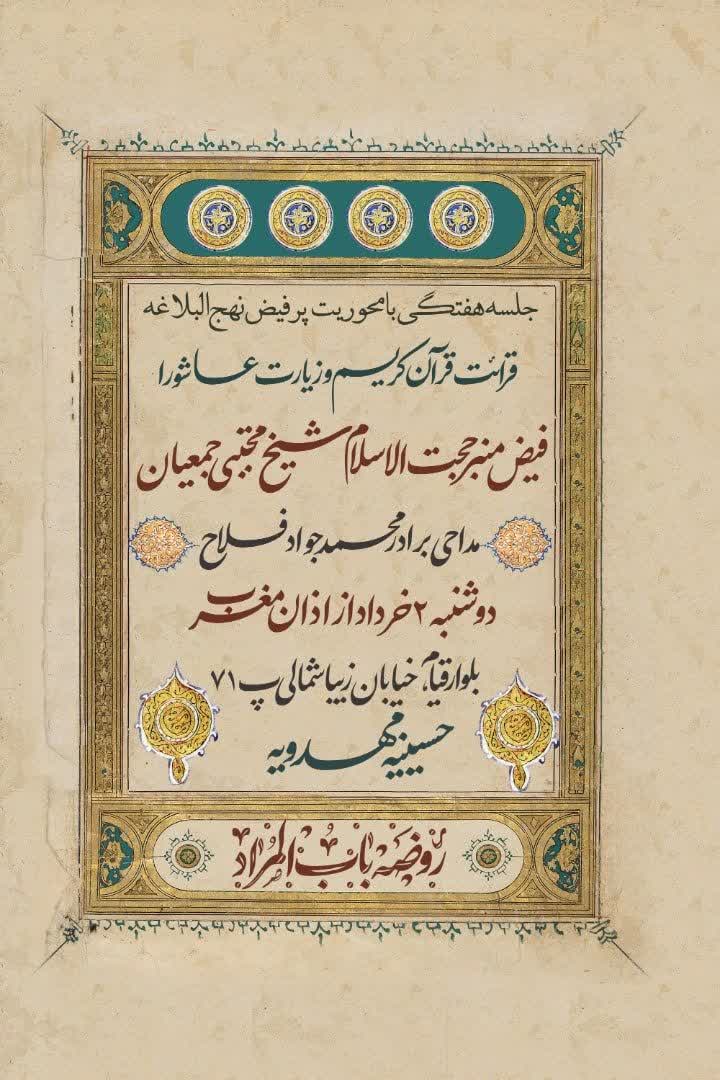 جلسه هفتگی با محوریت پرفیض نهج البلاغه
قرائت قرآن کریم و زیارت عاشورا
فیض منبر حجت الاسلام شیخ مجتبی جمعیان
مداحی برادر محمد جواد فلاح
دوشنبه ۲ خرداد از اذان مغرب
بلوار قیام، خیابان زیبا شمالی پ ۷۱
حسینیه مهدویه
روضه باب المراد